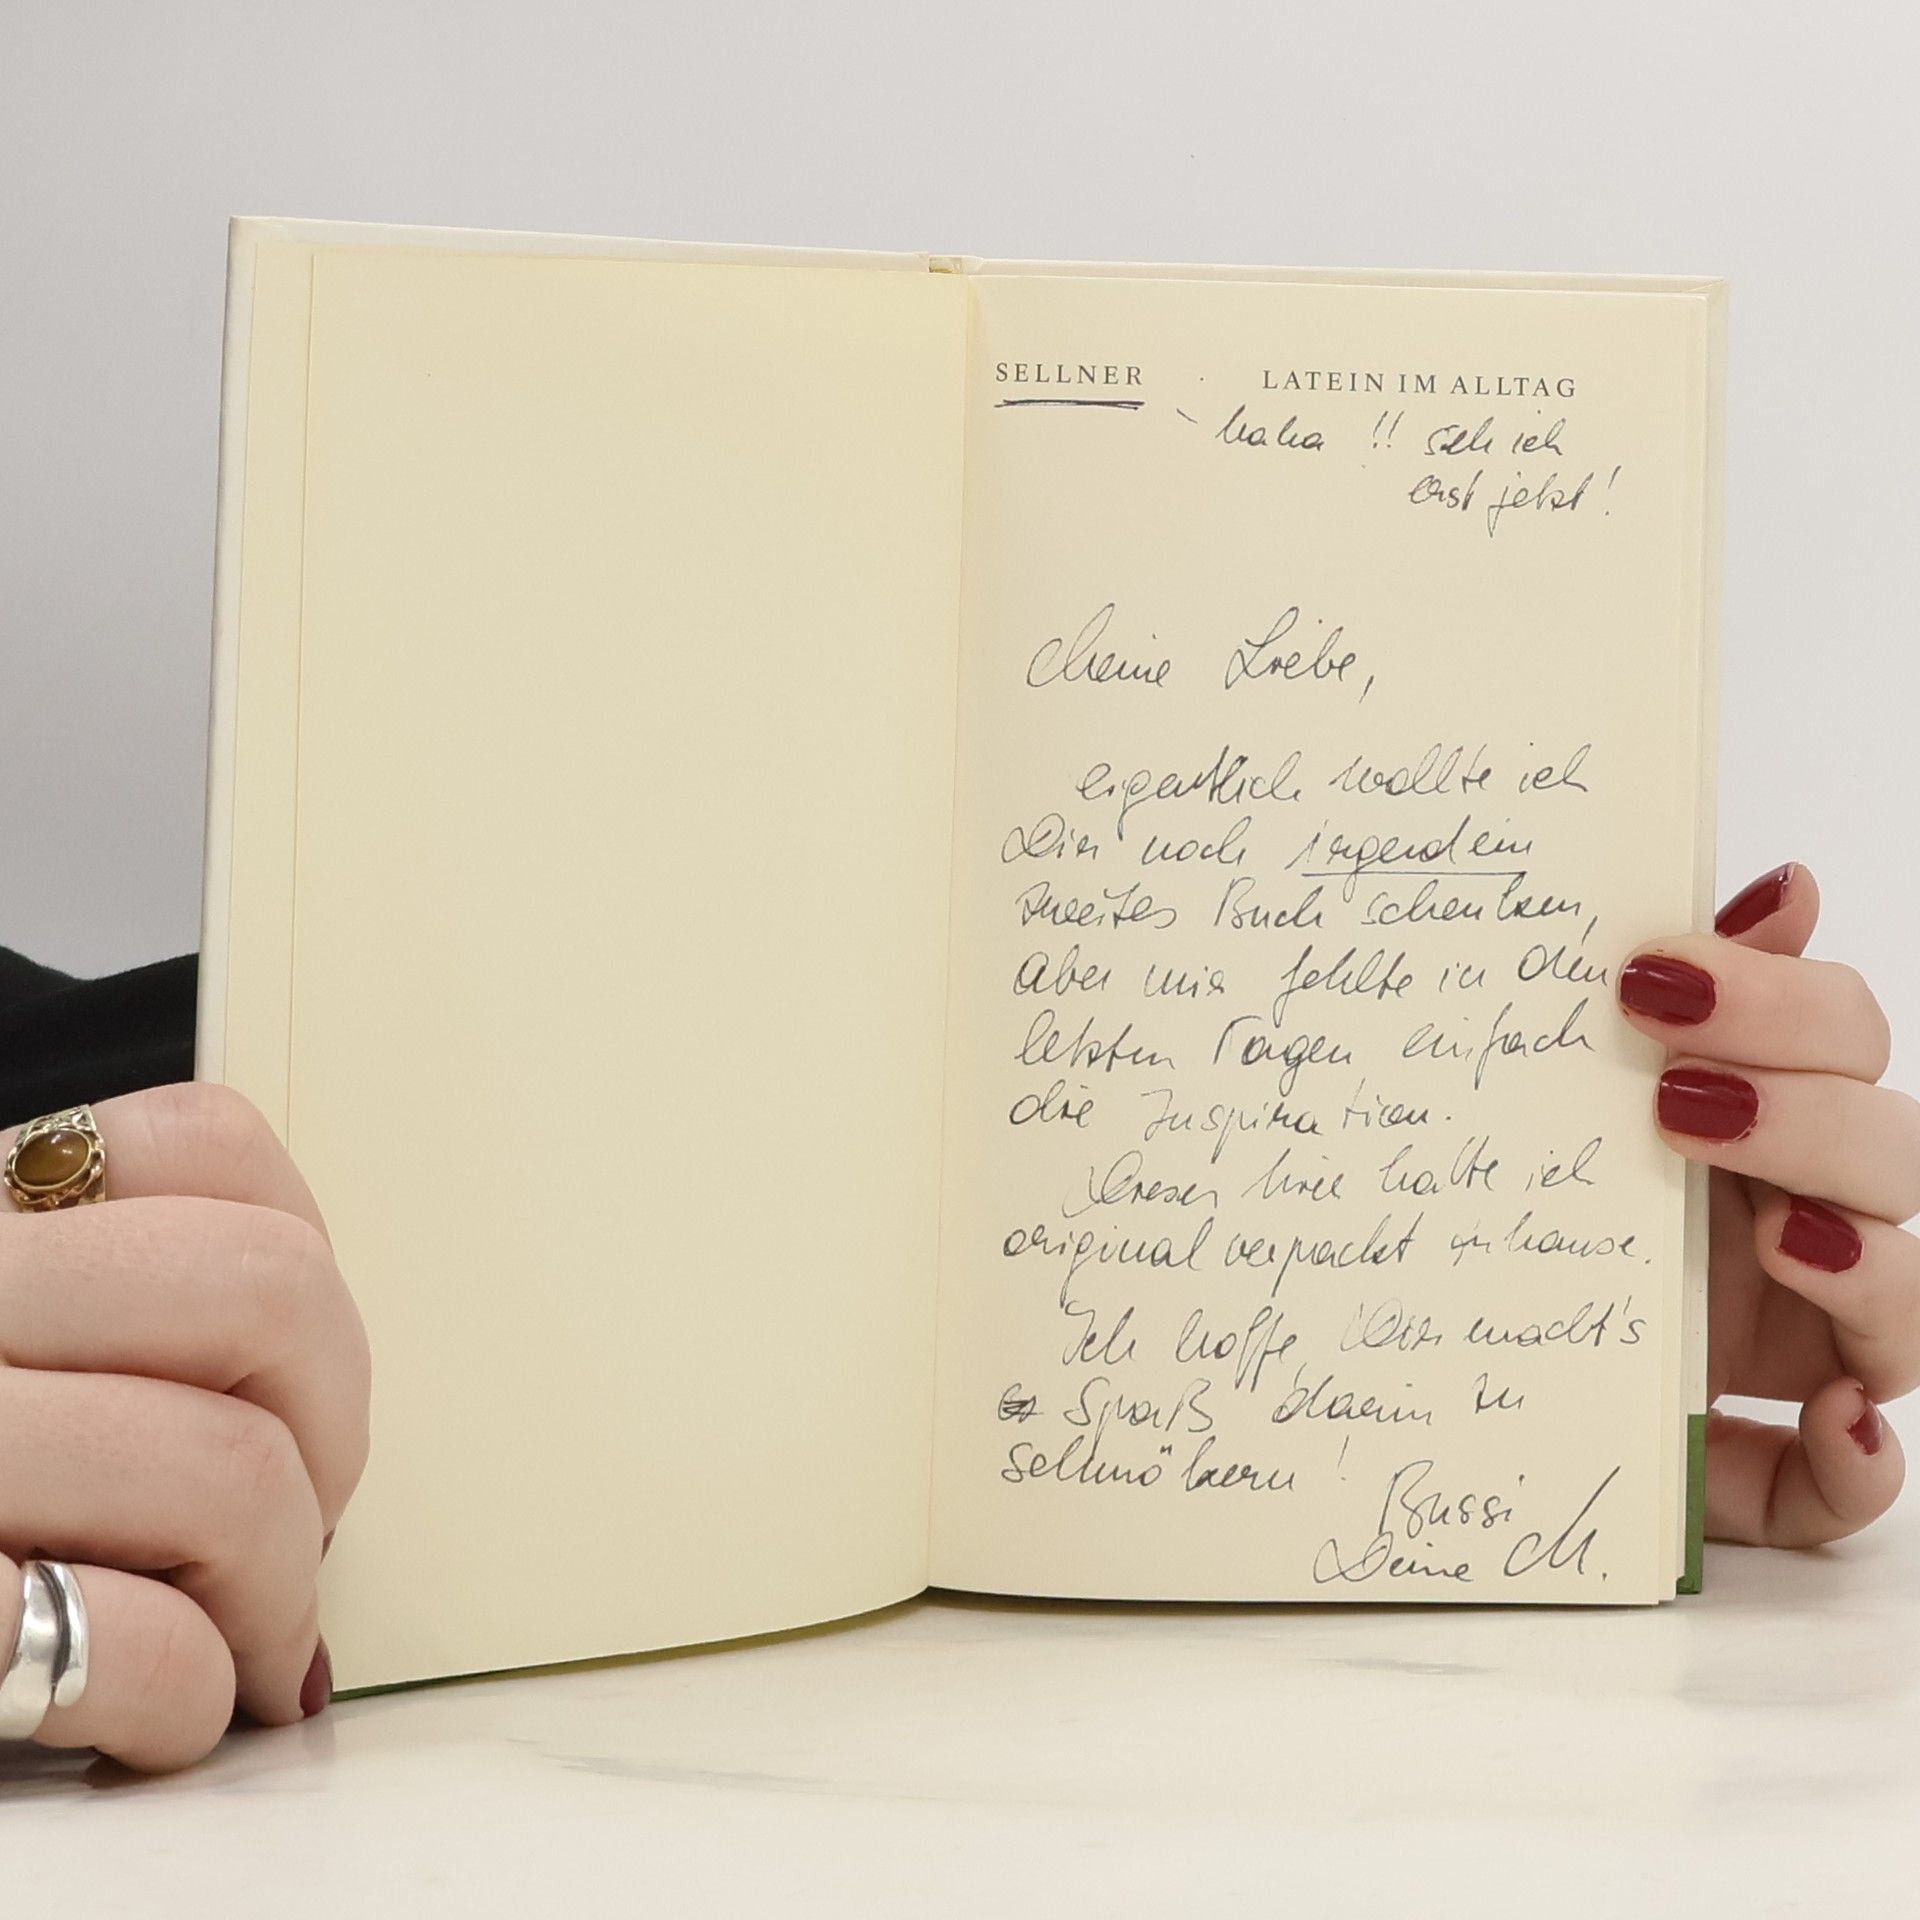 SELLNER · LATEIN IM ALLTAG
haha !! seh ich
erst jetzt!
Meine Liebe,
eigentlich wollte ich
Dir noch irgendein
zweites Buch schenken,
aber mir fehlte in den
letzten Tagen einfach
die Inspiration.
Dieses hier hatte ich
original verpackt zuhause.
Ich hoffe, Dir macht's
Spaß darin zu
schmökern!
Bussi
Deine M.